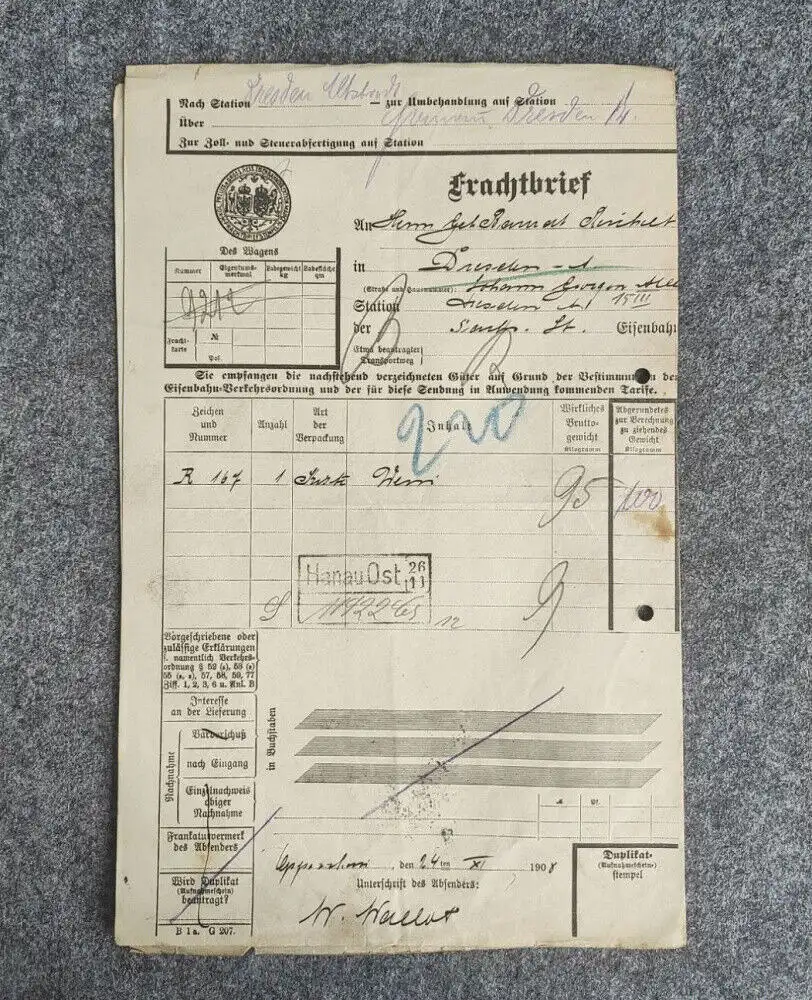 Nach Station Dresden Altstadt — zur Umbehandlung auf Station
Über Dresden
Zur Zoll- und Steuerabfertigung auf Station
Frachtbrief
An Herrn
in Dresden-A.
(Straße und Hausnummer): Johann Georgen Allee
15 III
Station Dresden A.
der Sächs. St. Eisenbahn
(Etwa beantragter Transportweg)
Des Wagens
Nummer Eigentums-merkmal Ladegewicht kg Ladefläche qm
9212
Fracht-karte № Pol.
Sie empfangen die nachstehend verzeichneten Güter auf Grund der Bestimmungen der
Eisenbahn-Verkehrsordnung und der für diese Sendung in Anwendung kommenden Tarife.
Zeichen und Nummer Anzahl Art der Verpackung Inhalt Wirkliches Bruttogewicht Kilogramm Abgerundetes zur Berechnung zu ziehendes Gewicht Kilogramm
220
R 167 1 Wein 95 100
Hanau Ost 26 11
Vorgeschriebene oder
zulässige Erklärungen
s. namentlich Verkehrs-
ordnung §
Ziff. 1, 2, 3, 6 u. Anl. B
Interesse
an der Lieferung
in Buchstaben
Nachnahme
Vorschuß
nach Eingang
Einzelnachweis
obiger
Nachnahme
Frankaturvermerk
des Absenders
Wird Duplikat
(Aufnahmeschein)
beantragt?
M. Pf.
den 24 ten XI 1908
Unterschrift des Absenders:
W. Wallot
Duplikat-
(Aufnahmeschein-)
stempel
B 1 a. G 207.